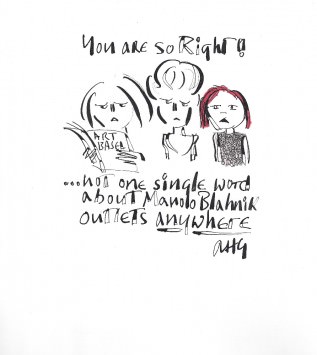 You are so Right!
ART
BASEL
...not one single word
about Manolo Blahnik
outlets anywhere